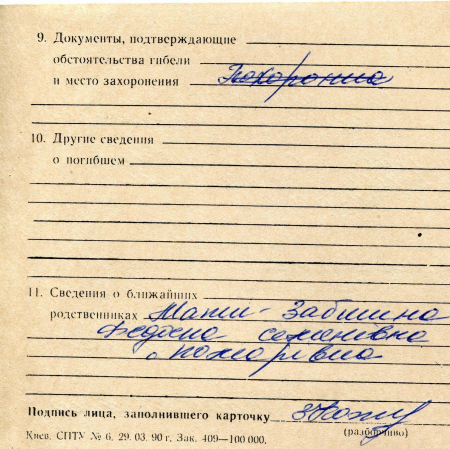 9. Документы, подтверждающие
обстоятельства гибели
и место захоронения Похоронка
10. Другие сведения
о погибшем
11. Сведения о ближайших
родственниках Мати - Забшина
семенівна
Подпись лица, заполнившего карточку
(разборчиво)
Киев. СПТУ № 6. 29. 03. 90 г. Зак. 409—100 000.